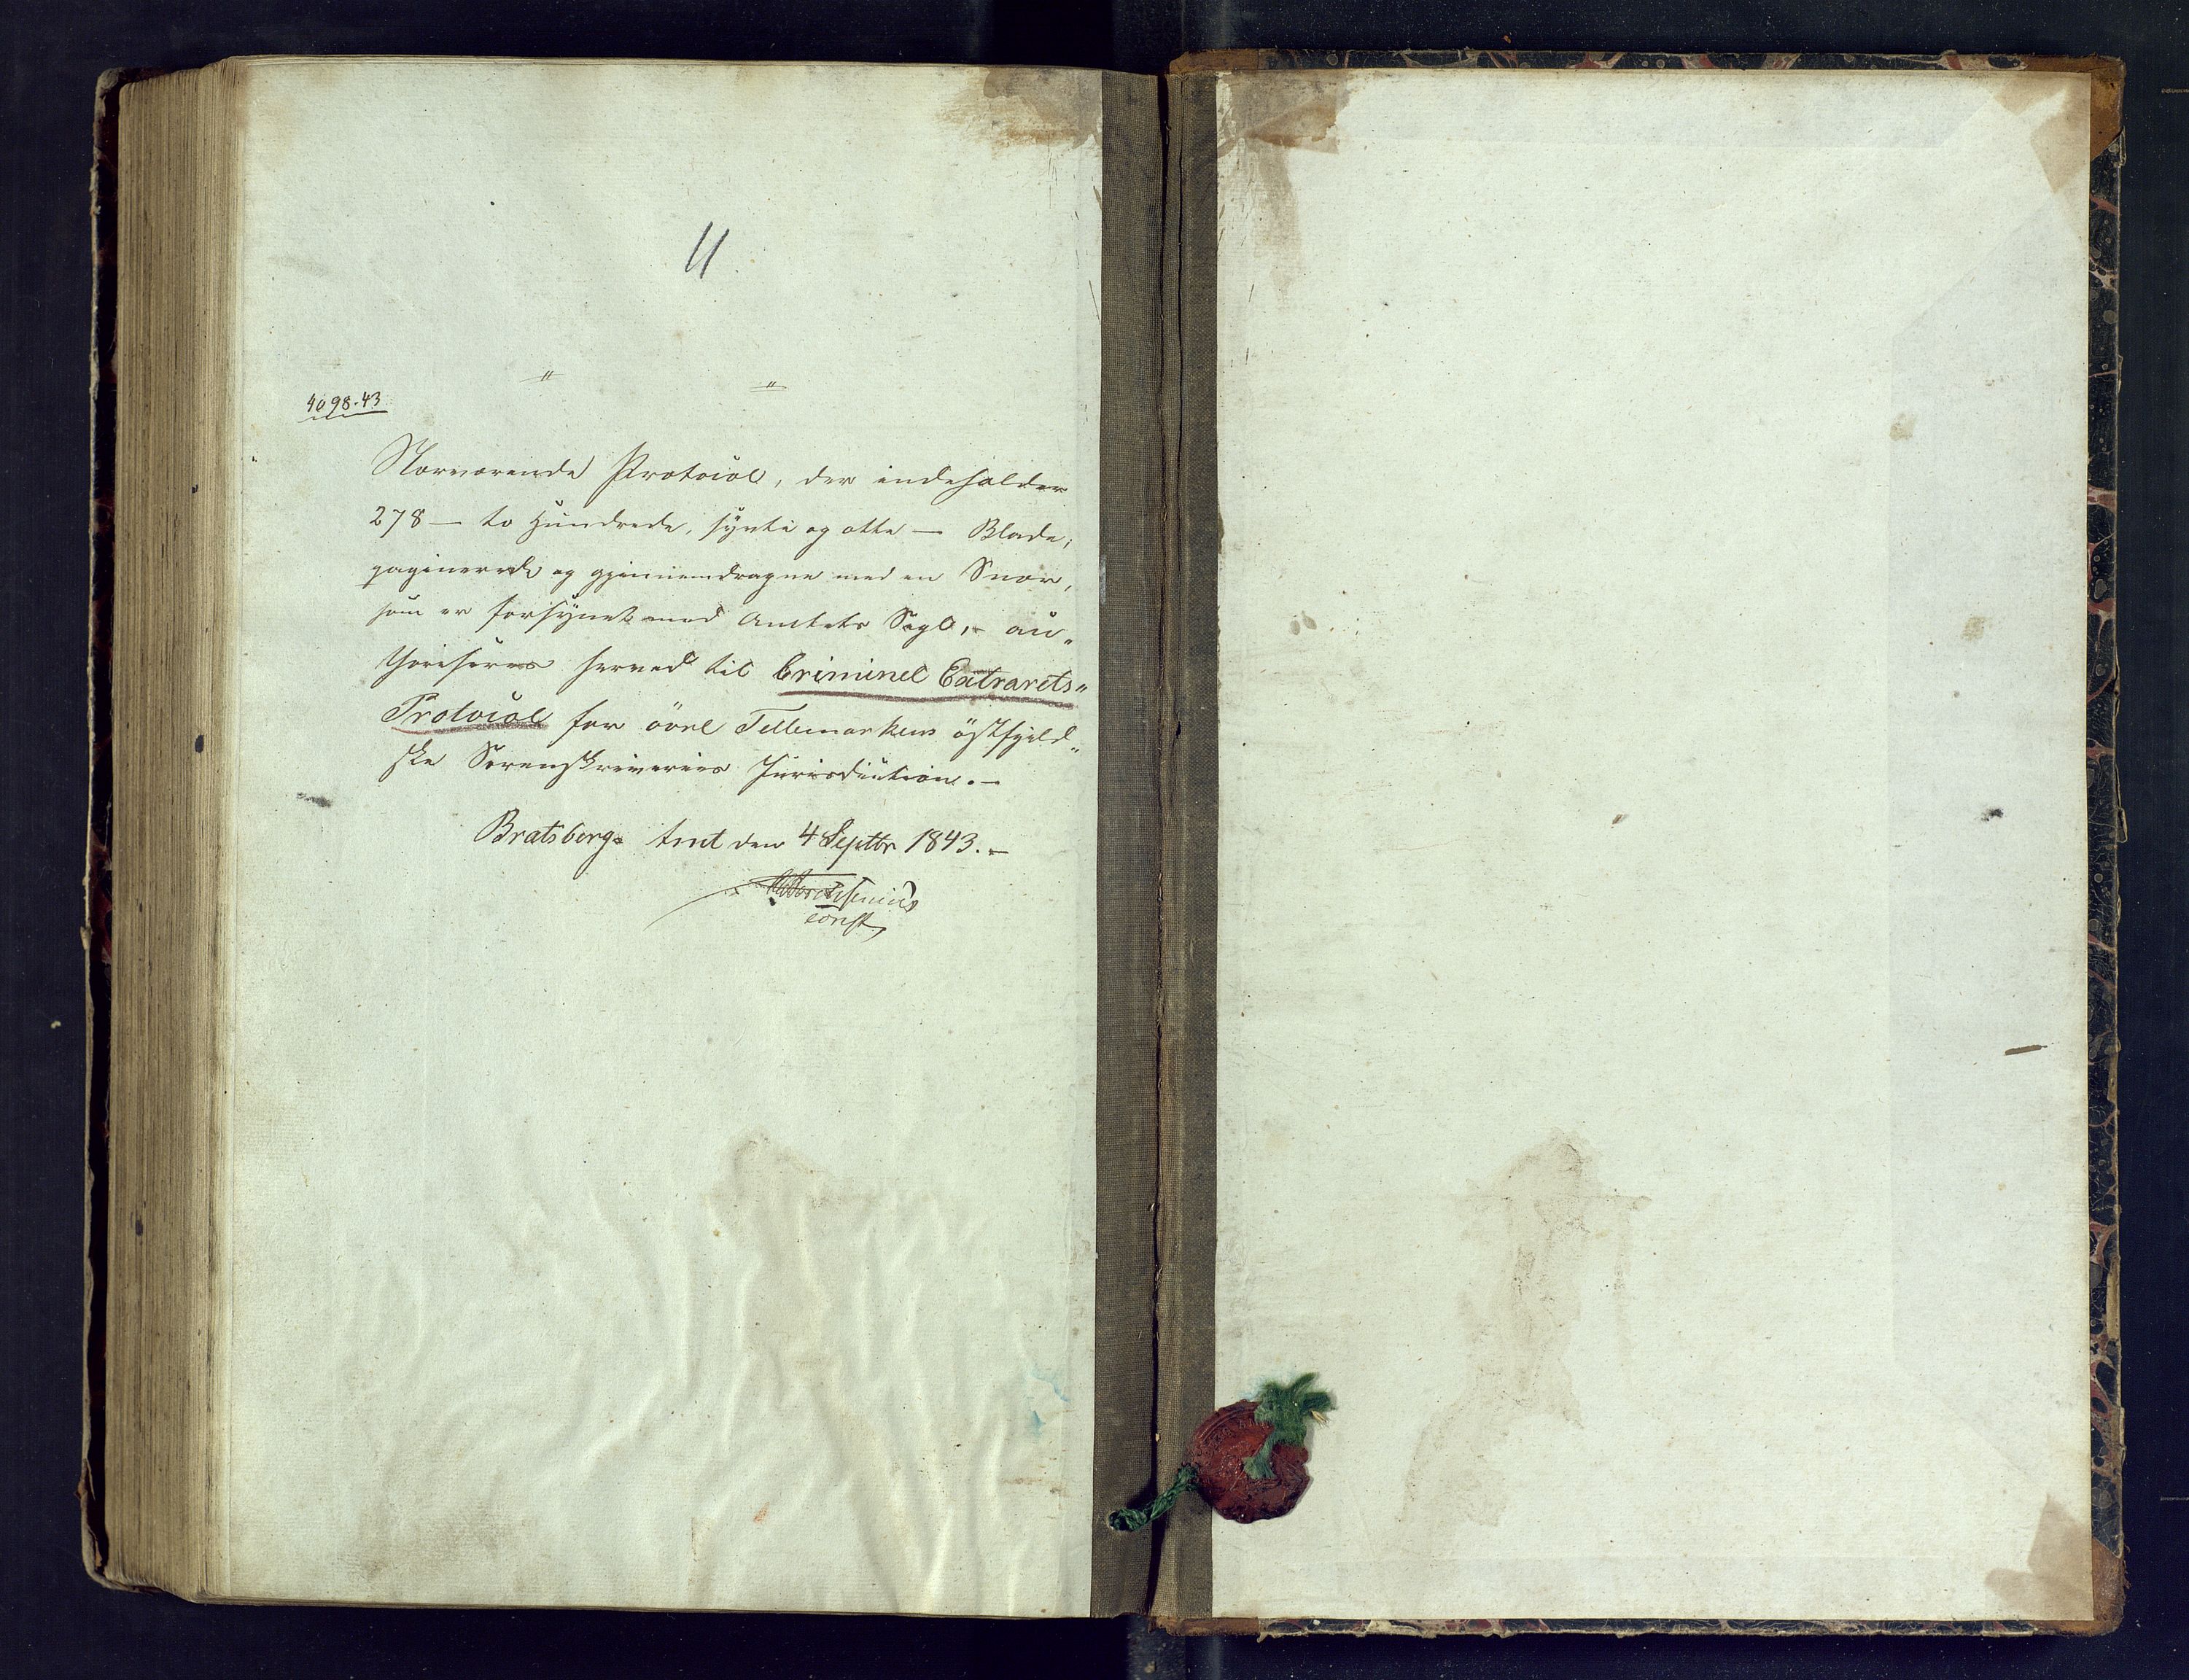 11.
"    "
4098.43
Nærværende Protocol, der indeholder
278 – to Hundrede, sytti og otte – Blade,
paginerede og gjennemdragne med en Snor,
som er forsynet med Amtets Segl, – au„
thoriseres herved til Criminel Extrarets„
Protocol for övre Tellemarkens östfjeld„
ske Sorenskriveries Jurisdiction. –
Bratsbergs Amt den 4 Septbr 1843. –
const.